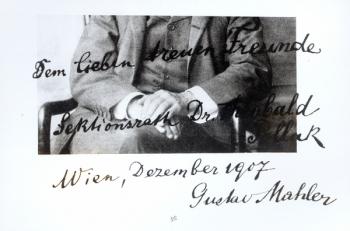 Dem lieben treuen Freunde
Sektionsrath Dr.
Wien, Dezember 1907
Gustav Mahler